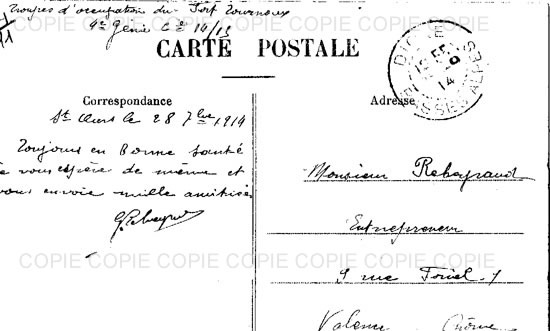 Troupes d'occupation du Fort Tournoux
4e Génie Cie 14/13
CARTE POSTALE
DIGNE
9
14
BASSES ALPES
Correspondance
Adresse
le 28 7bre 1914
Toujours en Bonne santé
vous espère de même et
vous envoie mille amitiés
Monsieur Rebeyraud
Entrepreneur
9 rue
Valence Drôme
COPIE COPIE COPIE COPIE COPIE COPIE COPIE COPIE
COPIE COPIE COPIE COPIE COPIE COPIE COPIE COPIE